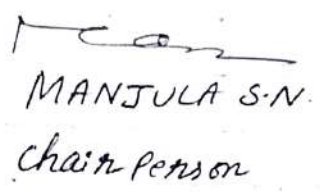 MANJULA S.N.
Chair Person